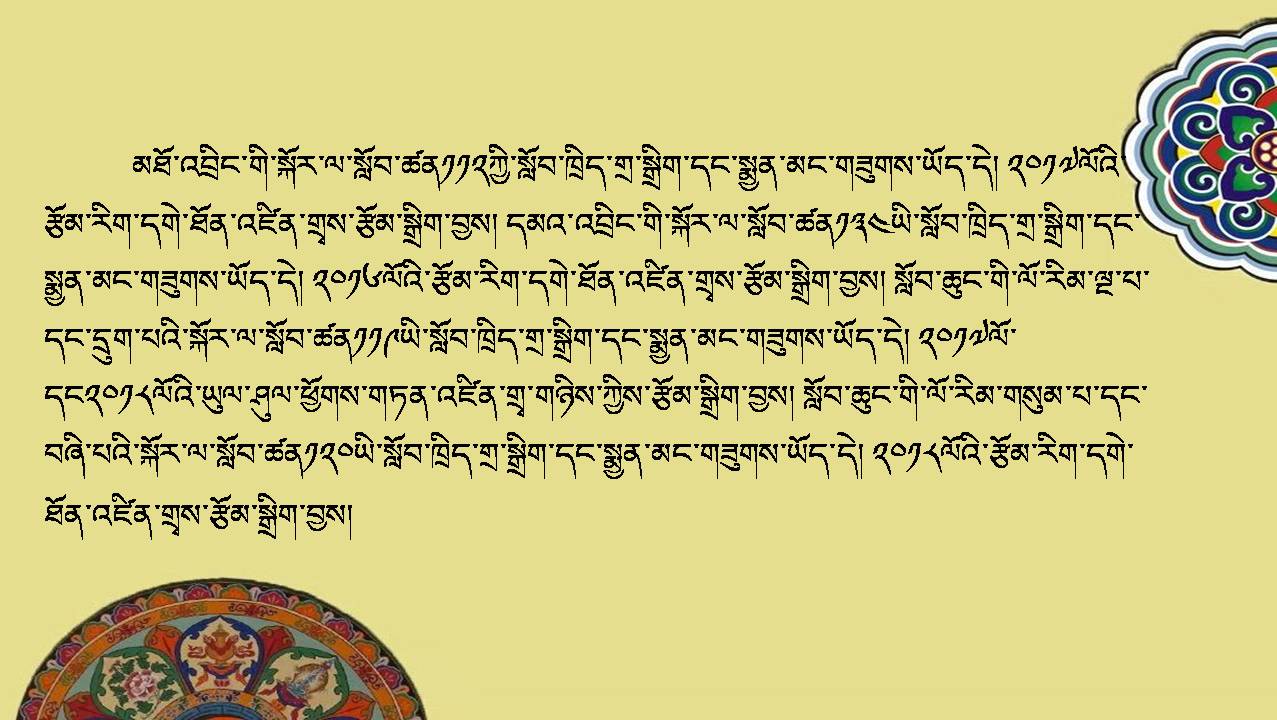 མཐོ་འབྲིང་གི་སྐོར་ལ་སློབ་ཚན༡༡༢ཀྱི་སློབ་ཁྲིད་གྲ་སྒྲིག་དང་སྨྱན་མང་གཟུགས་ཡོད་དེ། ༢༠༡༧ལོའི་
རྩོམ་རིག་དགེ་ཐོན་འཛིན་གྲྭས་རྩོམ་སྒྲིག་བྱས། དམའ་འབྲིང་གི་སྐོར་ལ་སློབ་ཚན༡༣༤ཡི་སློབ་ཁྲིད་གྲ་སྒྲིག་དང་
སྨྱན་མང་གཟུགས་ཡོད་དེ། ༢༠༡༦ལོའི་རྩོམ་རིག་དགེ་ཐོན་འཛིན་གྲྭས་རྩོམ་སྒྲིག་བྱས། སློབ་ཆུང་གི་ལོ་རིམ་ལྔ་པ་
དང་དྲུག་པའི་སྐོར་ལ་སློབ་ཚན༡༡༩ཡི་སློབ་ཁྲིད་གྲ་སྒྲིག་དང་སྨྱན་མང་གཟུགས་ཡོད་དེ། ༢༠༡༧ལོ་
དང༢༠༡༨ལོའི་ཡུལ་ཤུལ་ཕྱོགས་གཏན་འཛིན་གྲྭ་གཉིས་ཀྱིས་རྩོམ་སྒྲིག་བྱས། སློབ་ཆུང་གི་ལོ་རིམ་གསུམ་པ་དང་
བཞི་པའི་སྐོར་ལ་སློབ་ཚན༡༢༠ཡི་སློབ་ཁྲིད་གྲ་སྒྲིག་དང་སྨྱན་མང་གཟུགས་ཡོད་དེ། ༢༠༡༨ལོའི་རྩོམ་རིག་དགེ་
ཐོན་འཛིན་གྲྭས་རྩོམ་སྒྲིག་བྱས།